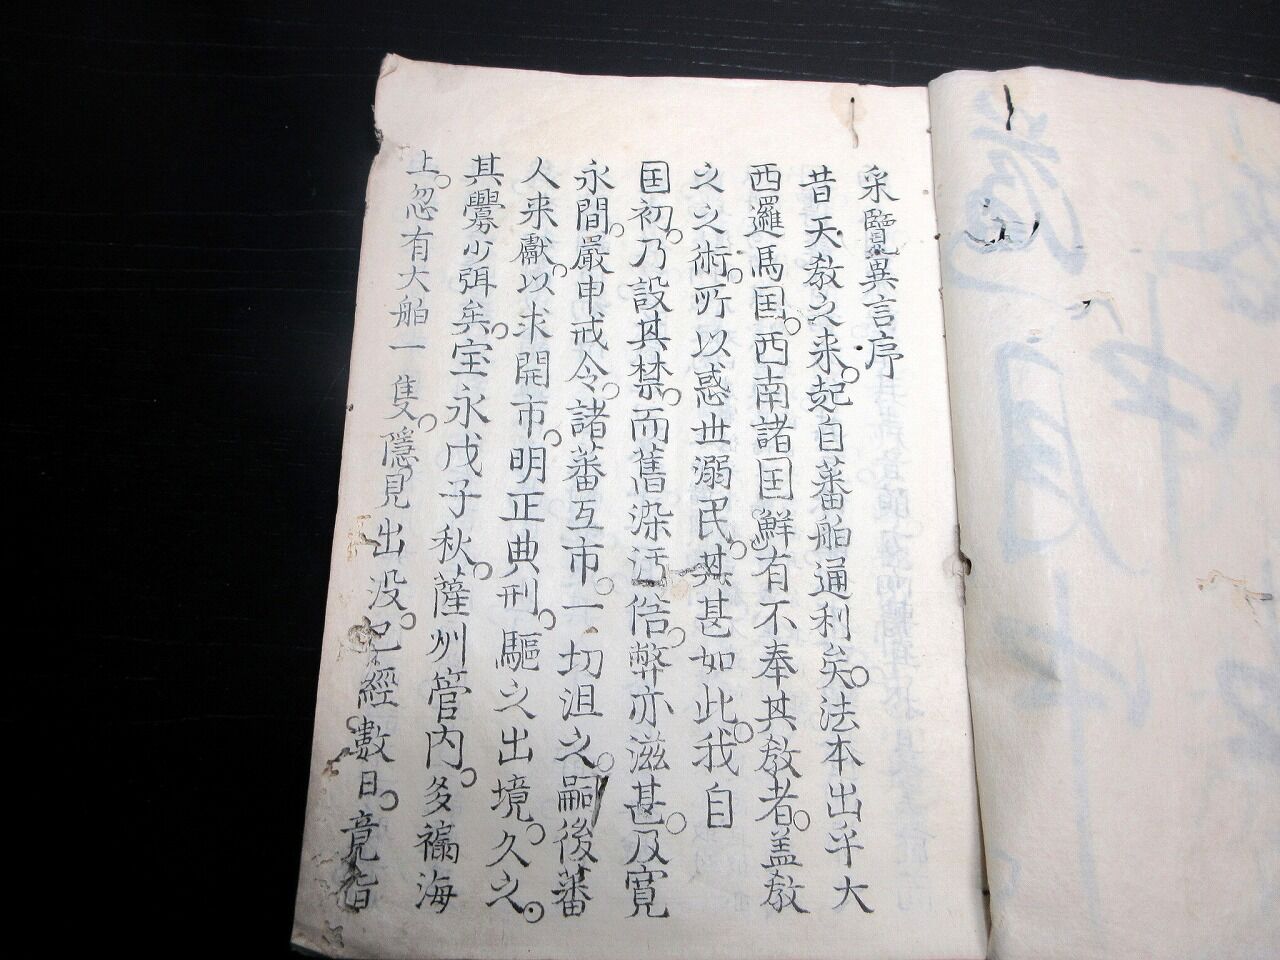 采覽異言序
昔天教之来。起自蕃舶通利矣。法本出乎大
西邏馬国。西南諸国鮮有不奉其教者。盖教
之之術。所以惑世溺民。其甚如此。我自
国初。乃設其禁。而舊染汚俗。弊亦滋甚。及寛
永間。嚴申戒令。諸蕃互市。一切沮之。嗣後蕃
人来獻。以求開市。明正典刑。驅之出境。久之。
其釁少弭矣。宝永戊子秋。薩州管内。多禰海
上。忽有大舶一隻。隱見出没。已經數日。竟